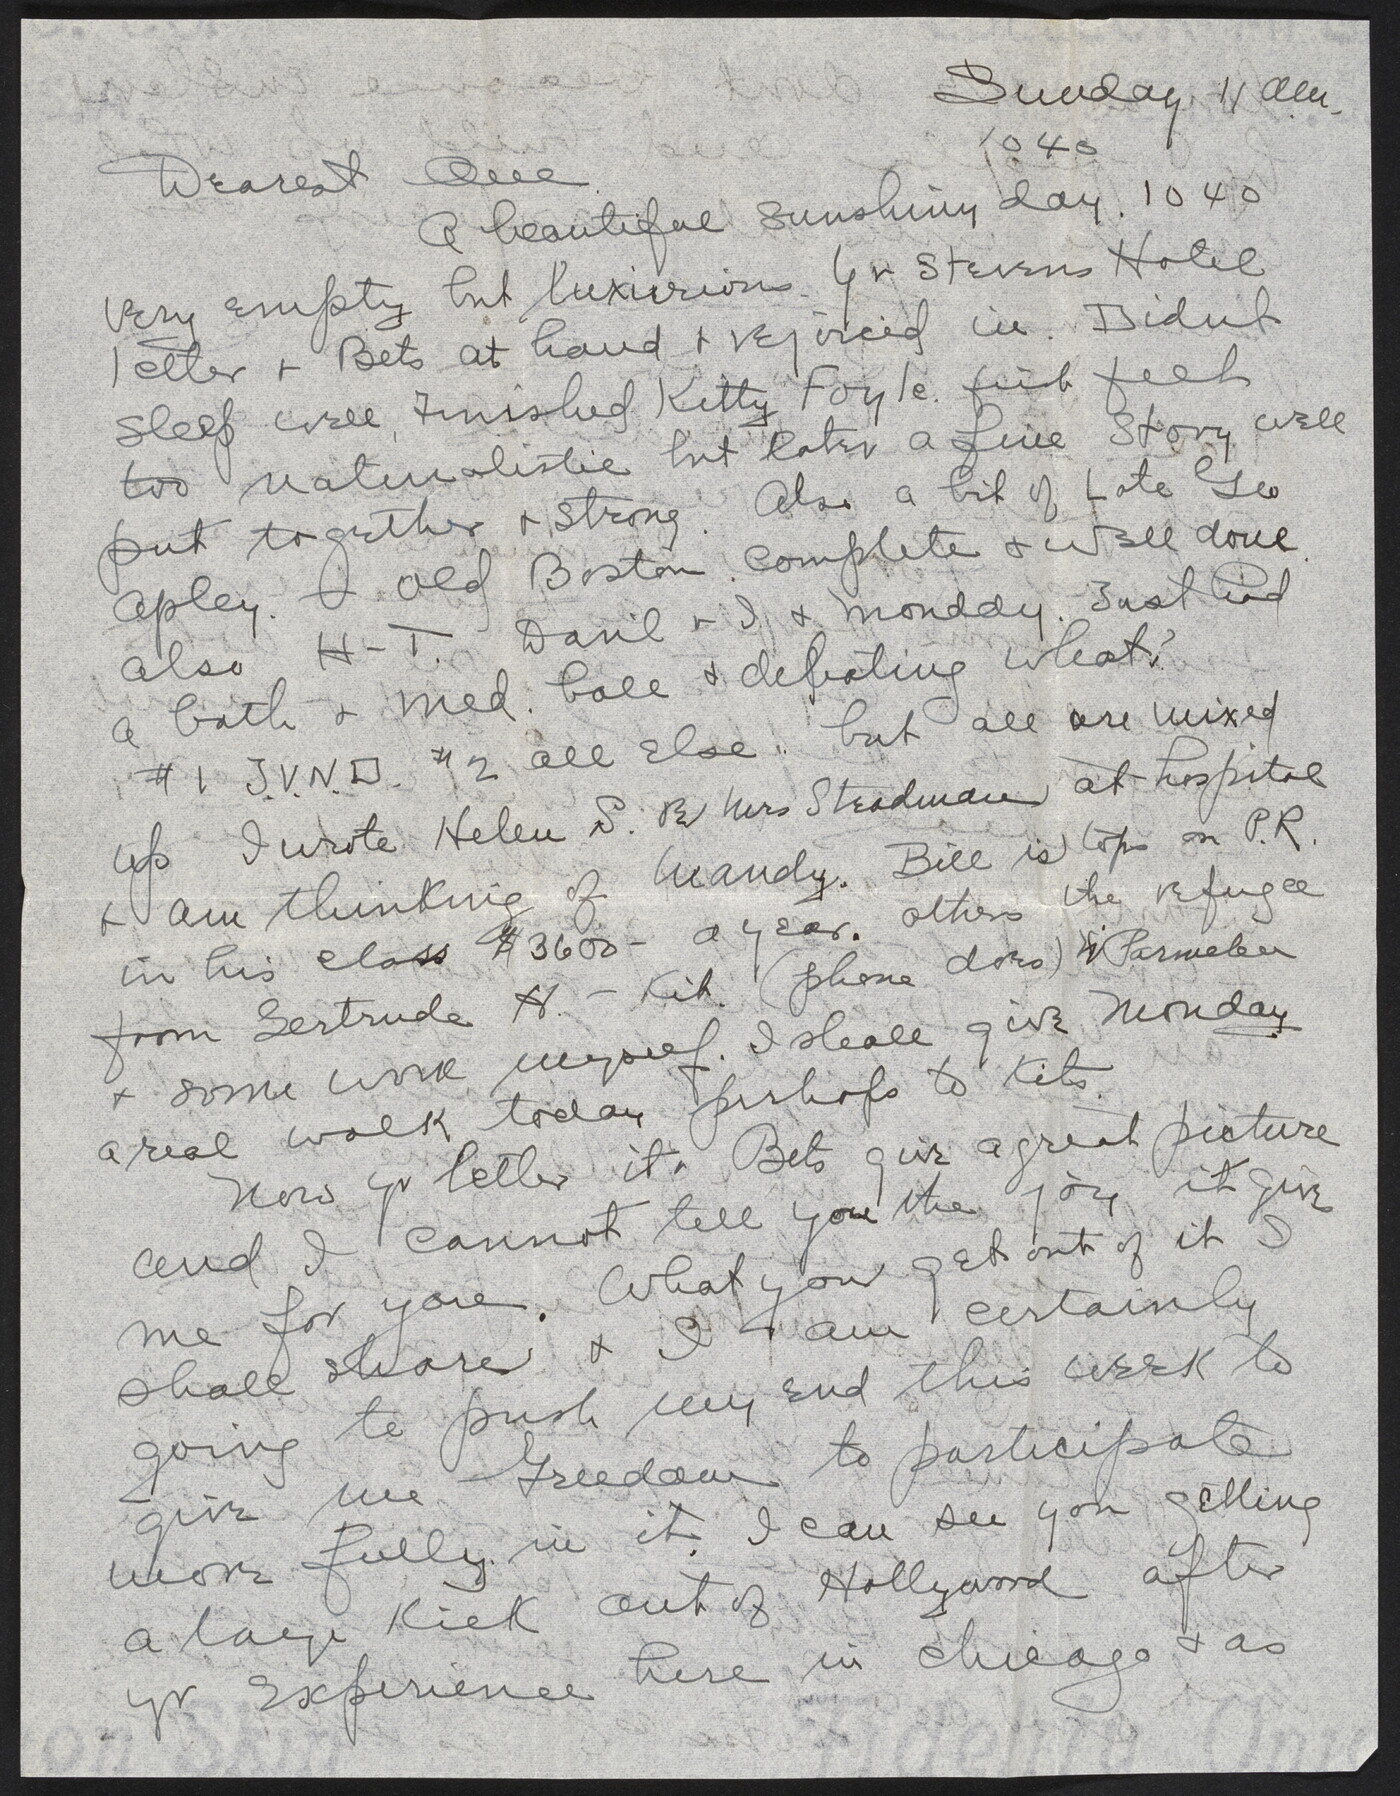 Sunday 11 am.
1040
Dearest One
A beautiful sunshiny day. 1040
very empty but luxurious. Yr Stevens Hotel
letter + Bets at hand + rejoiced in. Didnt
sleep well, finished Kitty Foyle. first felt
too naturalistic but later a fine story well
put together + strong. Also a bit of Late Geo
Apley. Old Boston complete + well done.
also H-T. + I + Monday. Just had
a bath + med. ball + debating what?
#1 J.V.N.D. #2 all else.. but all are mixed
up I wrote Helen S. re Mrs Steadman at hospital
+ am thinking of Mandy. Bill is tops on P.R.
in his class $3600- a year. others the refugee
from Gertrude H. - Kit. (phone does) Parmelee
+ some work myself. I shall give Monday
a real walk today perhaps to Kits.
Now yr letter it + Bets give a great picture
and I cannot tell you the joy it give
me for you. What you get out of it I
shall share + I am certainly
going to push my end this week to
give me Freedom to participate
more fully in it. I can see you getting
a large kick out of Hollywood after
yr experience here in Chicago + as
on Skin Fidelity Onion